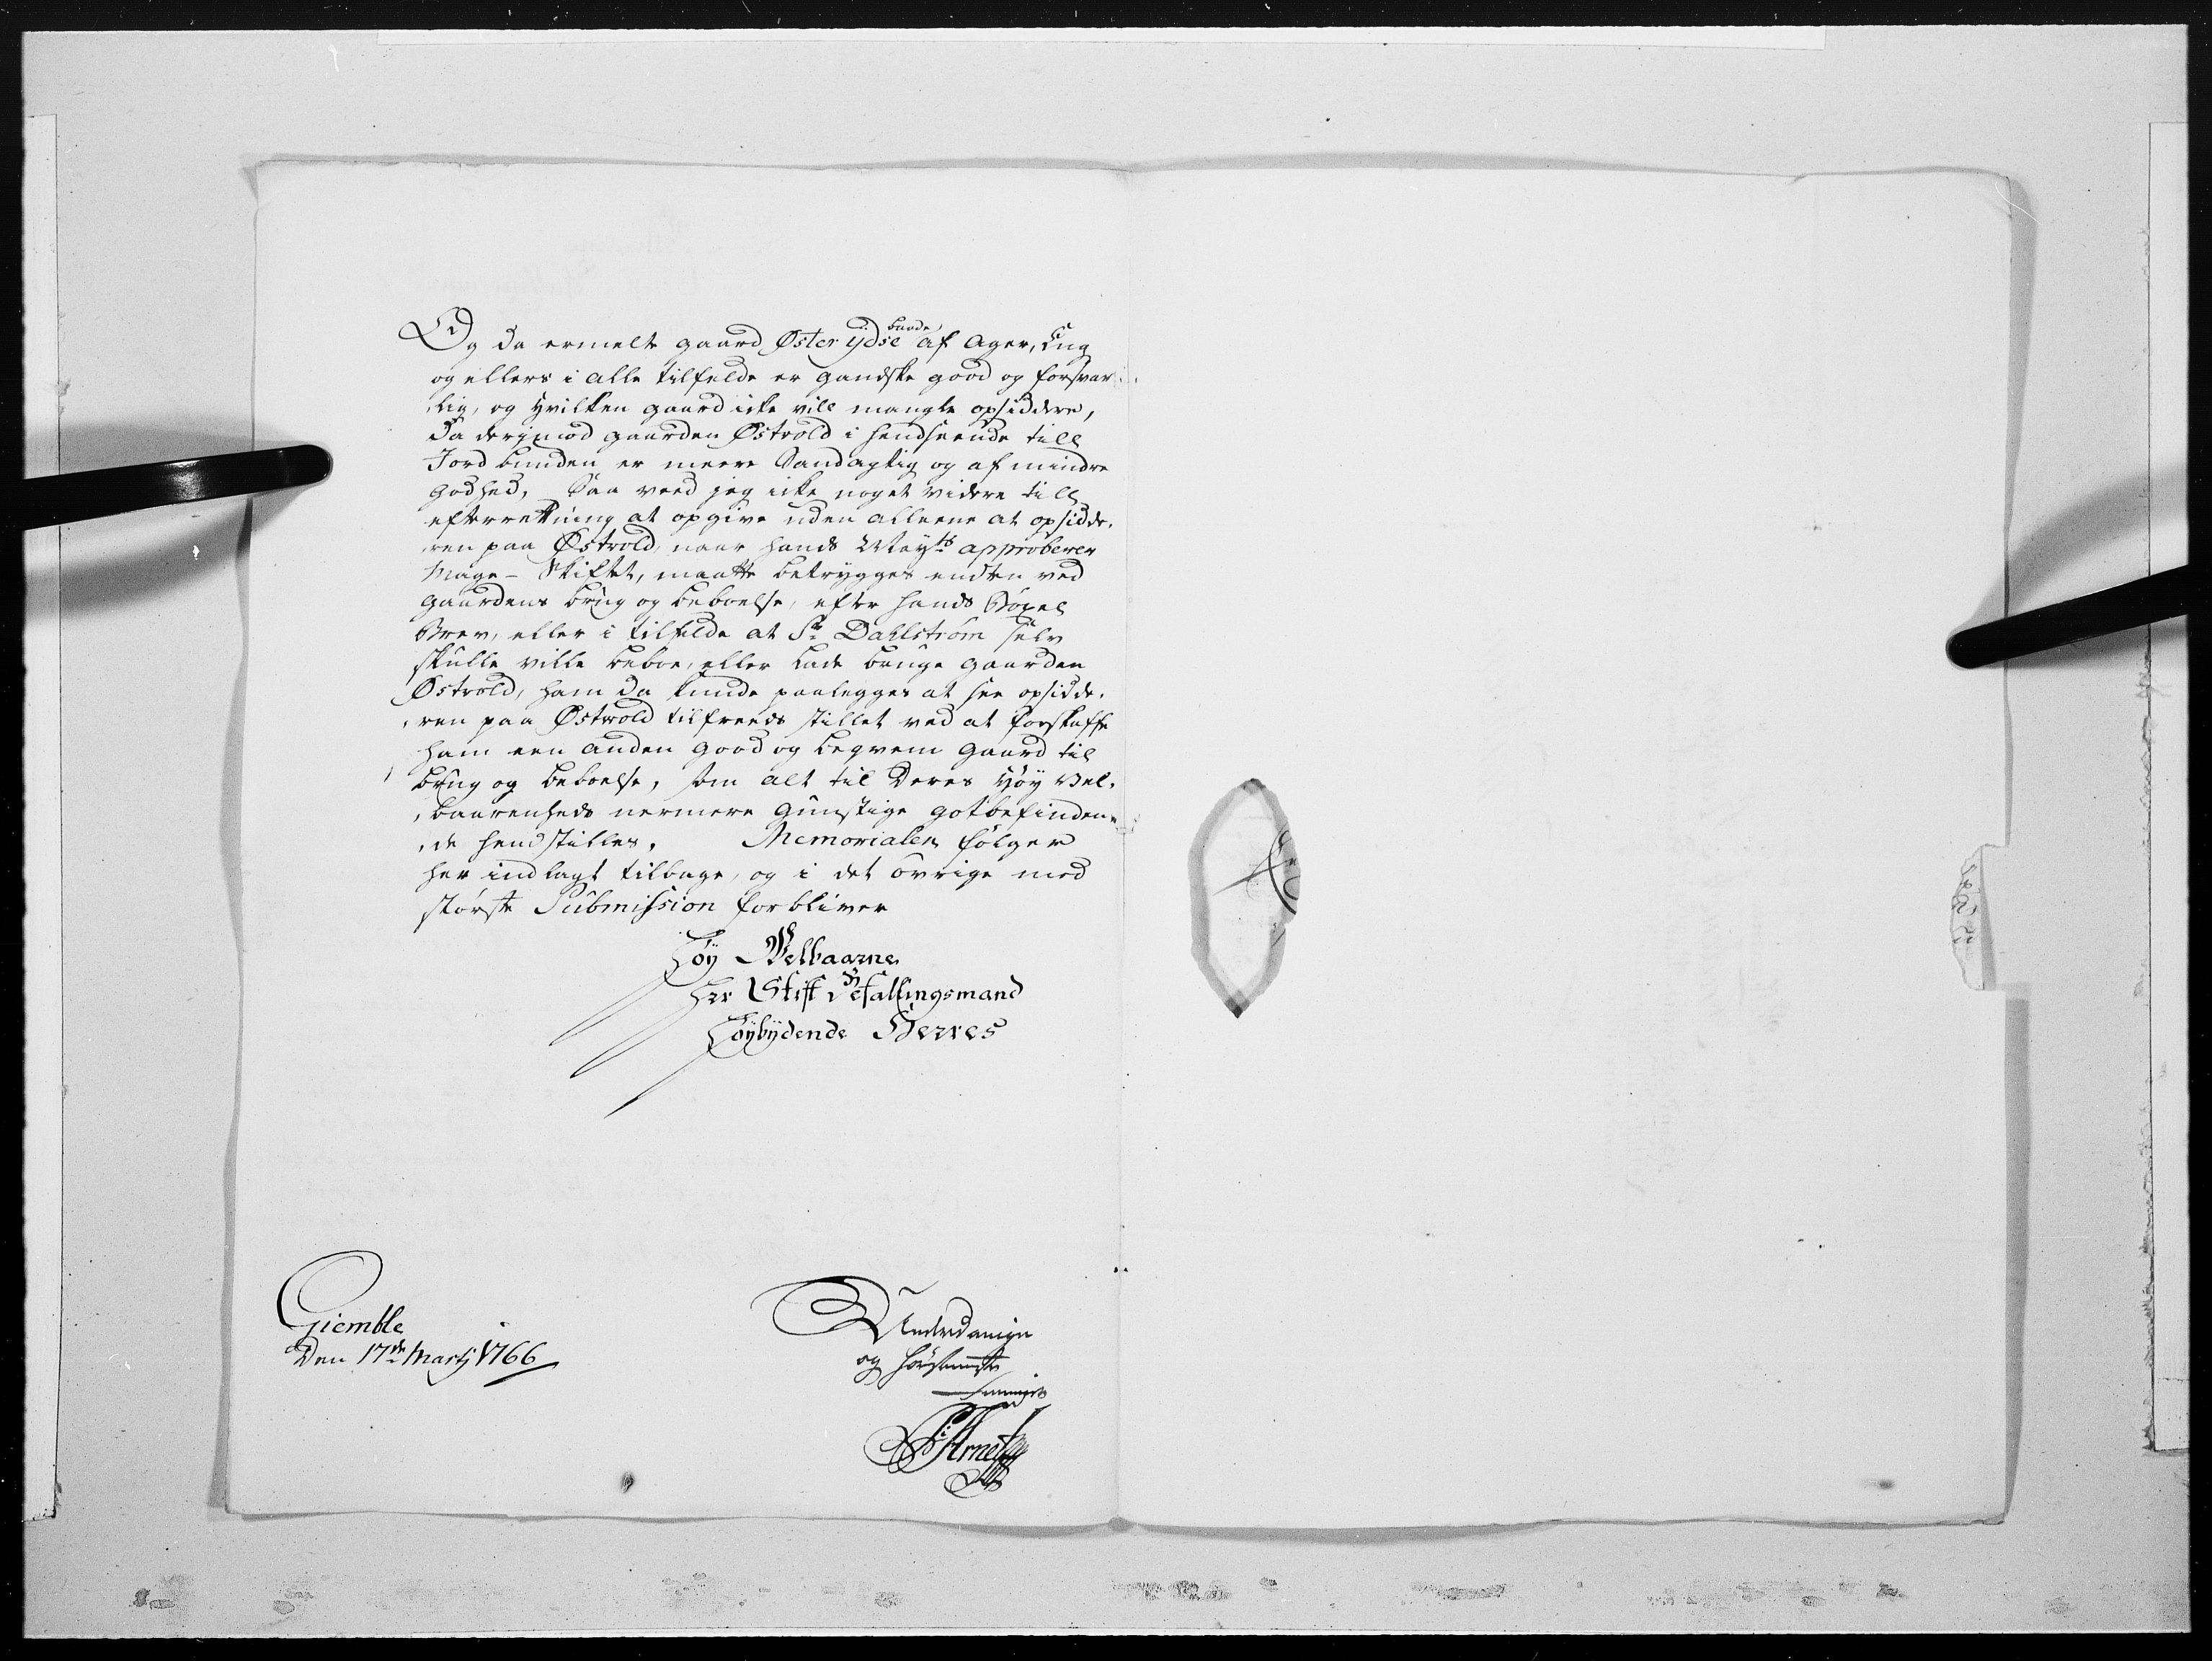 Og da ermelte gaard Øster ÿdse baade af Ager, Eng
og ellers i alle tilfelde er gandske good og forsvar-
lig, og hvilken gaard icke vill mangle opsiddere,
Da derjmod gaarden Østvold i henseende till
Jord bunden er meere Sandagtig og af mindre
godhed, Saa veed jeg icke noget videre till
efterretning at opgive uden alleene at opsidde-
ren paa Østvold, naar hands Mayts approberer
Mage-Skiftet, maatte betrygges endten ved
gaardens brug og beboelse, efter hands Böxel
Brev, eller i tilfelde at Sr Dahlström selv
skulle ville beboe, eller lade bruge gaarden
Østvold, ham da kunde paalegges at see opsidde-
ren paa Østvold tilfreeds stillet ved at forskaffe
ham een anden good og beqvem gaard til
brug og beboelse, som alt til Deres Höy Vel-
baarenheds nermere gunstige gotbefinden-
de henstilles. Memorialen fölger
her indlagt tilbage, og i det övrige med
störste Submission forbliver
Höy Welbaarne
Her Stift Befallingsmand
Höybÿdende Herres
Giemble
Den 17de Martj 1766
Underdanige
og hörsomste
tienner